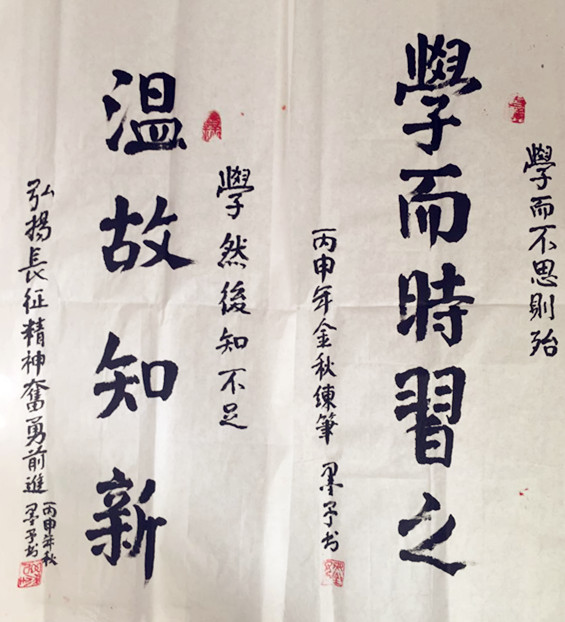 學而不思則殆
學而時習之
丙申年金秋練筆 墨予书
學然後知不足
温故知新
弘揚長征精神奮勇前進
丙申年秋
墨予书